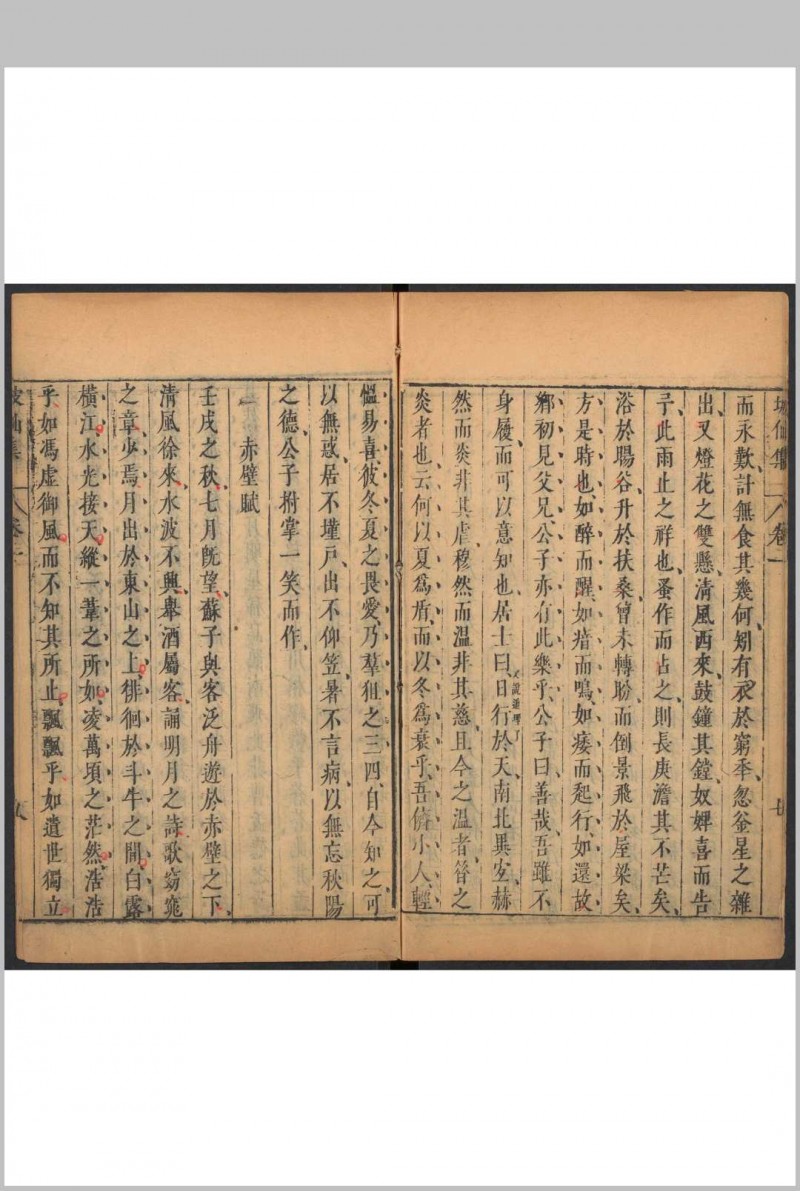 坡仙集 卷一
而永歎計無食其幾何矧有衣於窮年忽釜星之雜
出又燈花之雙懸清風西來鼓鐘其鏜奴婢喜而告
予此雨止之祥也蚤作而占之則長庚澹其不芒矣
浴於暘谷升於扶桑曾未轉盼而倒景飛於屋梁矣
方是時也如醉而醒如瘖而鳴如痿而起行如還故
鄉初見父兄公子亦有此樂乎公子曰善哉吾雖不
身履而可以意知也居士曰日行於天南北異宜赫
然而炎非其虐穆然而溫非其慈且今之溫者昝之
炎者也云何以夏為盾而以冬為衰乎吾儕小人輕
慍易喜彼冬夏之畏愛乃羣狙之三四自今知之可
以無惑居不墐戶出不仰笠暑不言病以無忘秋陽
之德公子拊掌一笑而作
赤壁賦
壬戌之秋七月既望蘇子與客泛舟遊於赤壁之下
清風徐來水波不興舉酒屬客誦明月之詩歌窈窕
之章少焉月出於東山之上徘徊於斗牛之間白露
橫江水光接天縱一葦之所如凌萬頃之茫然浩浩
乎如馮虛御風而不知其所止飄飄乎如遺世獨立
坡仙集 卷一